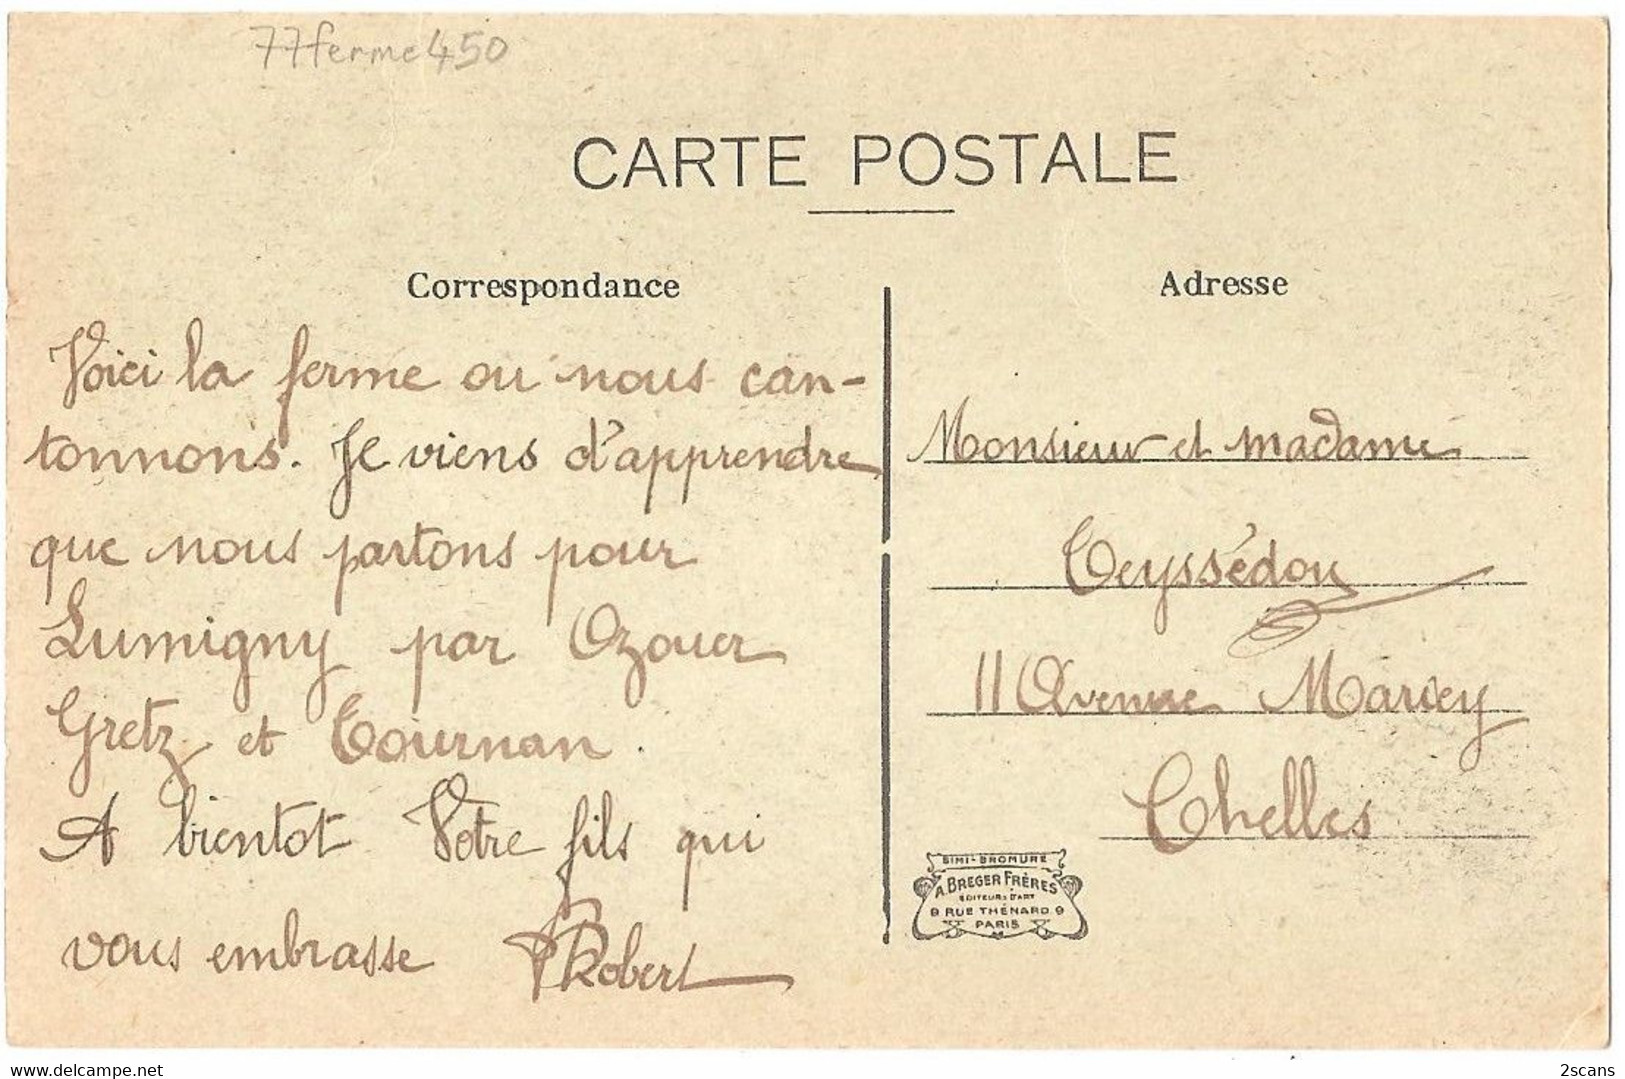 77ferme450
CARTE POSTALE
Correspondance
Adresse
Voici la ferme ou nous can-
tonnons. Je viens d'apprendre
que nous partons pour
Lumigny par Ozouer
Gretz et Tournan.
A bientot Votre fils qui
vous embrasse Robert
Monsieur et madame
Teyssédou
11 Avenue
Chelles
SIMI-BROMURE
A. BREGER FRÈRES
EDITEURS D'ART
9 RUE THÉNARD 9
PARIS
www.delcampe.net
2scans